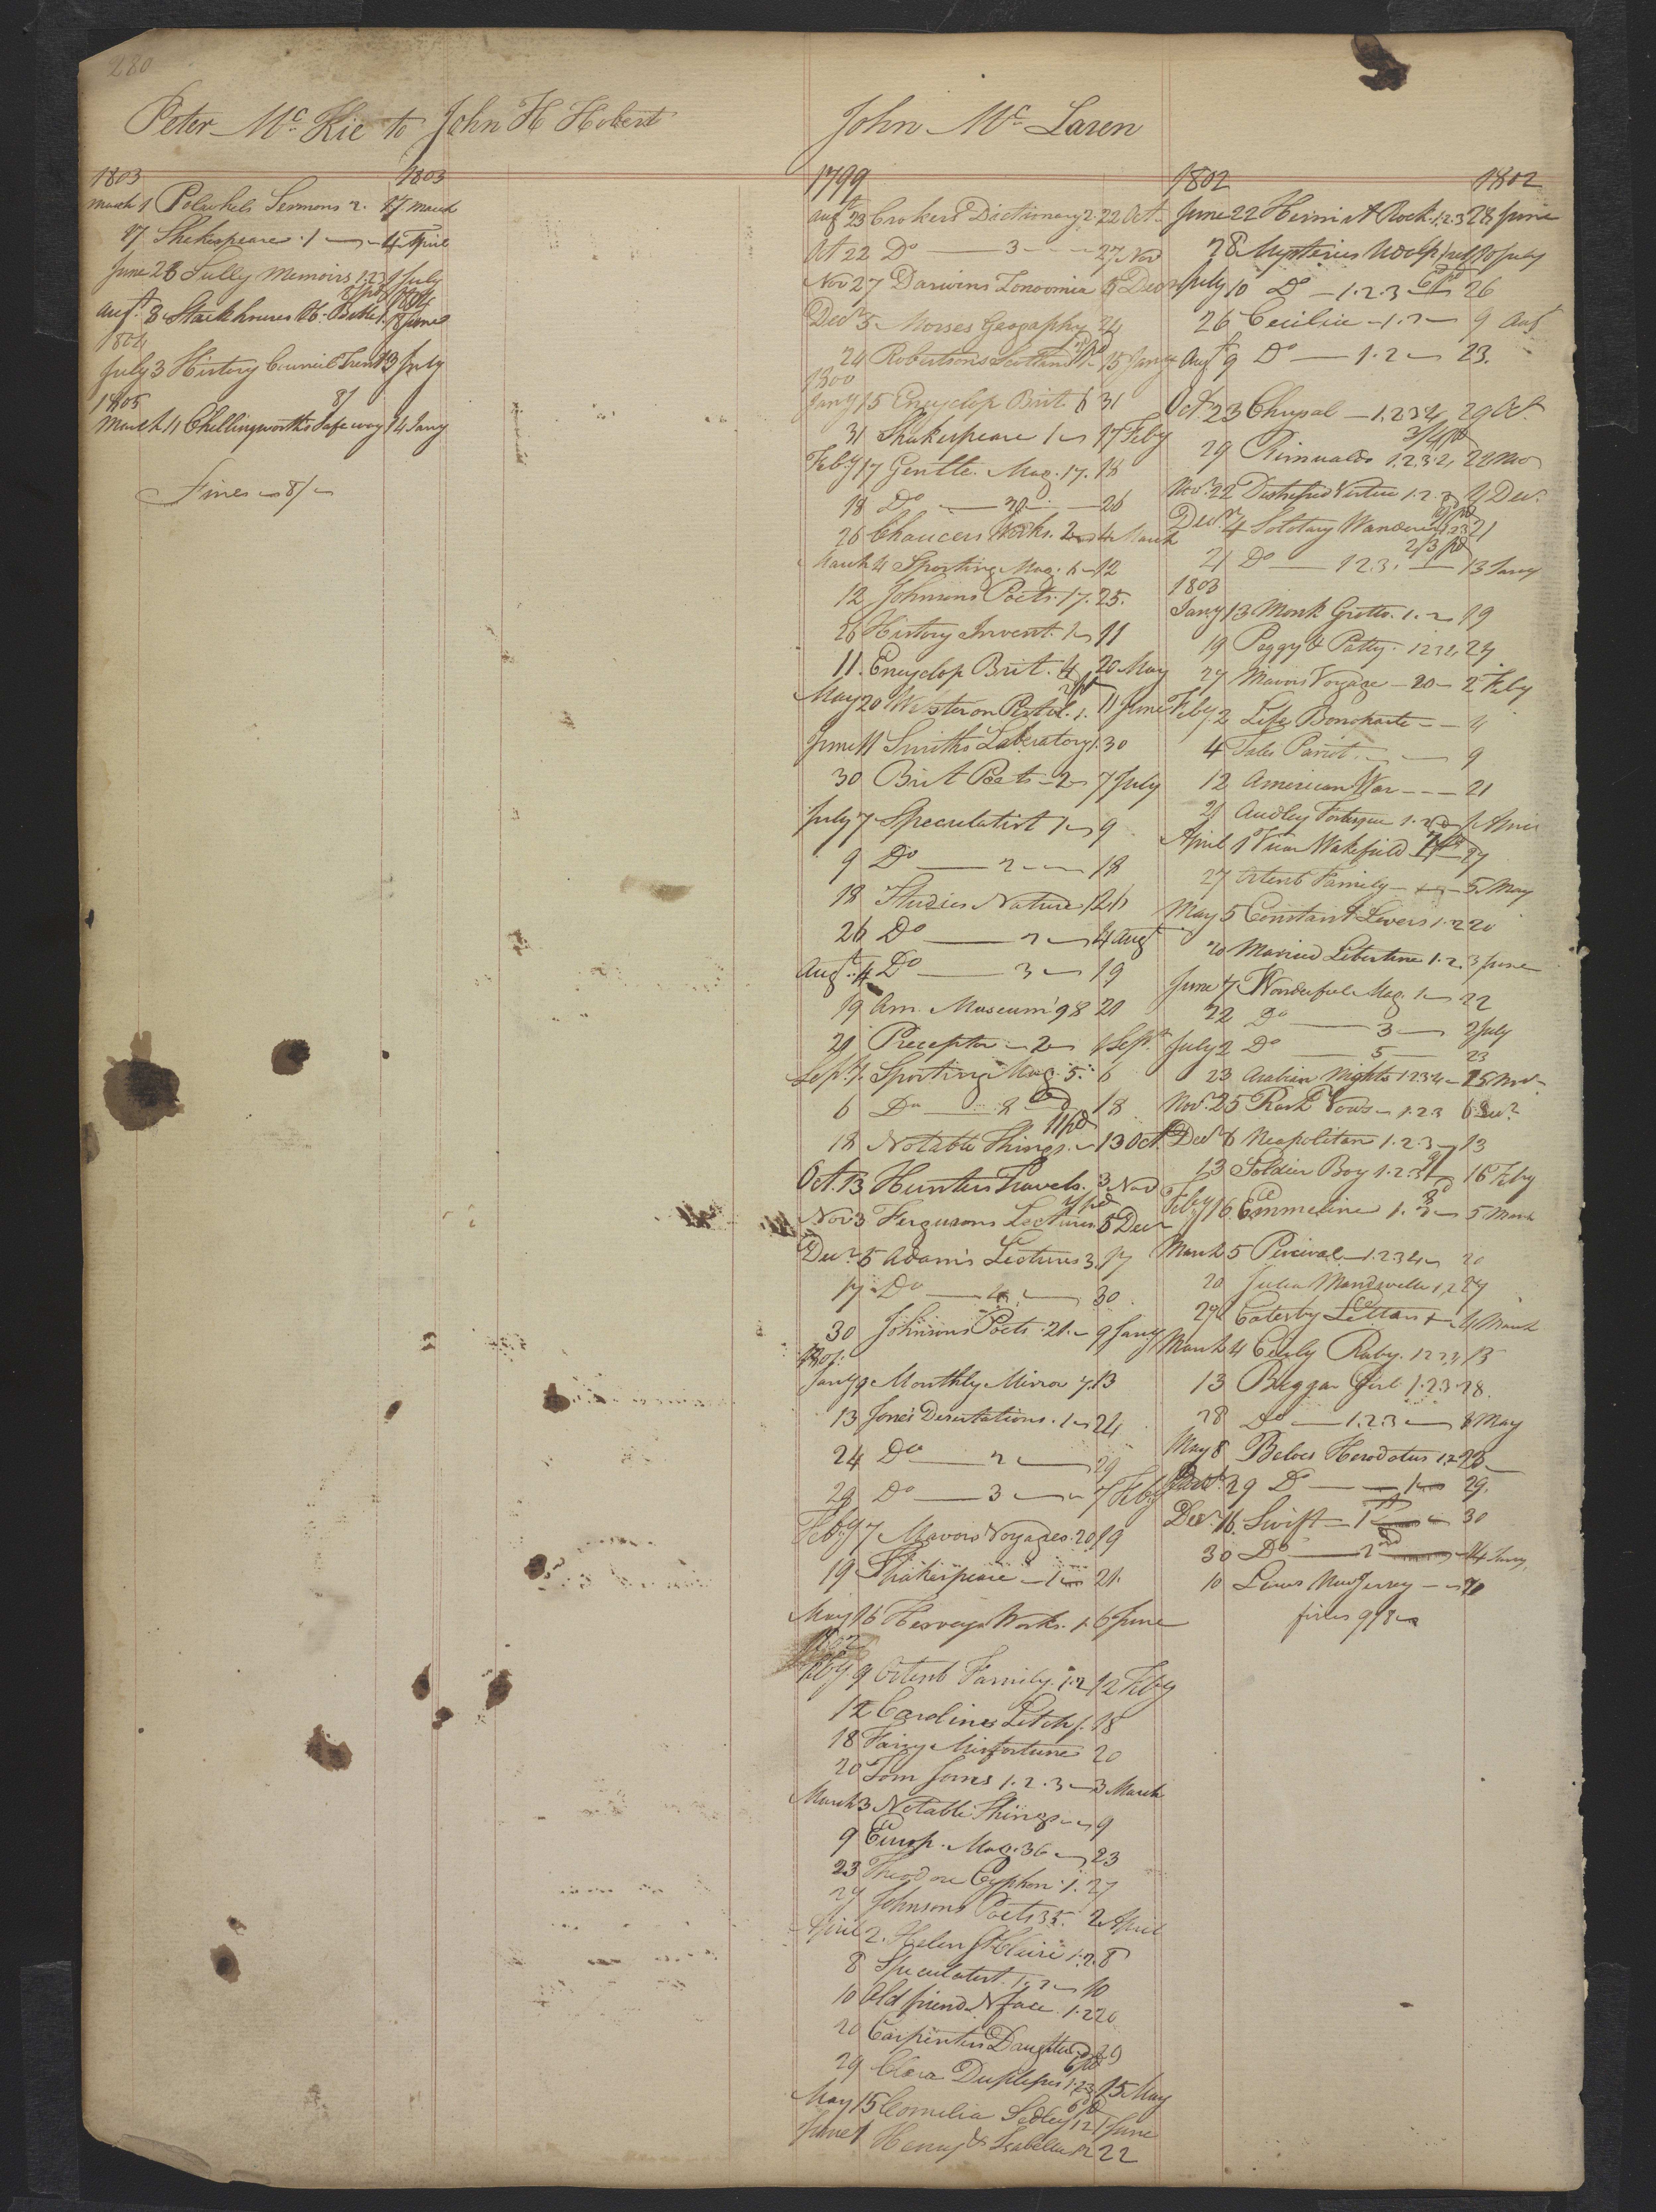 280
Peter Mc Kie to John H Hobert
1803 1803
March 1 Polwhels Sermons 2. 17 March
17 Shakespeare . 1 4 April
June 28 Sully Memoirs 1.2.3 July
Augt. 8 Stackhouses H. Bible 1. June
1804
July 3 History Council Trent 13 July
8/
1805
March 11 Chellingworths Safe way 14 Jany
Fines 8/
John Mc Laren
1799
Augt 23 Crokers Dictionary 2 22 Oct
Oct 22 Do 3 27 Nov
Nov 27 Darwins Zonoomia 5 Decr
Decr 5 Morses Geography 24
24 Robertsons Scotland 1 15 Jany
1800
Jany 15 Encyclop Brit 6 31
31 Shakespeare 1 17 Feby
Feby 17 Gentle. Mag. 17. 18
18 Do 26
26 Chaucers Works. 2 4 March
March 4 Sporting Mag. 6 12
12 Johnsons Poets. 17. 25.
26 History Invent. 1 11
11. Encyclop Brit. 4 20 May
May 20 1. 11 June
June 11 Smiths Laboratory 1. 30
30 Brit Poets 2 7 July
July 7 Speculatist 1 9
9 Do 2 18
18 Studies Nature 1 26
26 Do 2 4 Augt
Augt. 4 Do 3 19
19 Am. Museum 98 21
21 Preceptor 2 1 Sept.
Sept. 1. Sporting Mag. 5. 6
6 Do 8 18
18 Notable Things. 13 Oct.
Oct. 13 Hunters Travels. 3 Nov
Nov 3 Fergusons Lectures 5 Decr
Decr. 5 Adams Lectures 3. 17
17 Do 4 30
30 Johnsons Poets. 21. 9 Jany
1801.
Jany 9 Monthly Mirror 7. 13
13 Jones Desertations. 1 24
24 Do 2 29
29 Do 3 7 Feby
Feby 7 Mavors Voyages. 20 19
19 Shakespeare 1 21.
May 16 Herveys Works. 1. 6 June
1802
Feby 9 Orient Family. 1.2 12 Feby
12 Carolines Litch 1. 18
18 Fairy Misfortune 20
20 Tom Jones 1.2.3 3 March
March 3 Notable Things 9
9 Europ. Mag. 36 23
23 Theodore Cyphon. 1. 27
27 Johnsons Poets 35. 2 April
April 2. Helen St Claire 1.2. 8
8 Speculatist. 1.2 10
10 Old friend N face. 1.2 20
20 Carpenters Daughter 29
29 Clara Duplesses 1.2.3 15 May
May 15 Cornelia Sedley 1 2 1 June
June 1 Henry & Isabella 1 2 22
1802 1802
June 22 Hermist Rock. 1.2.3 28 June
28 Mysteries Udolp 10 July
July 10 Do 1.2.3 26
26 Cecilia 1.2 9 Augt
Augt 9 Do 1.2 23.
Oct. 23 Chrysal 1.2.3 4, 29 Oct.
3/4 pd
29 Rimualdo 1.2.3.4, 22 Nov
Nov. 22 Distressed Vertue 1.2.3 4 Dec.
Decr. 4 Solotary Wanderer 1.2.3 21
2/3 pd
21 Do 1 2.3. 13 Jany
1803
Jany 13 Monk Grotto. 1.2 19
19 Peggy & Patty. 1 2 3 4, 27
27 Mavors Voyage 20 2 Feby
Feby 2 Life Bonokarte 4
4 Tales Parrot 9
12 American War 21
21 Audley Fortesque 1.2 1 April
April 1 Vicar Wakefield 27
27 Orient Family 5 May
May 5 Constant Lovers 1.2 20
20 Married Libertine 1.2. 3 June
June 7 Wonderful Mag. 1 22
22 Do 3 2 July
July 2 Do 5 23
23 Arabian Nights 1.2.3.4 25 Nov
Nov. 25 Rash Vows 1.2.3 6 Decr
Decr 6 Neapolitan 1.2.3 13
13 Soldier Boy 1.2.3 16 Feby
Feby 16 Emmeline 1. 3 5 March
March 5 Percival 1.2 3 4 20
20 Julia Mandeville 1,2 27
29 Catesby Letters 4 March
March 4 Cicely Raby. 1 2 3 4 13
13 Beggar Girl 1.2.3 28.
28 Do 1.2.3 8 May
May 8 Beloes Herodotus 1.2 23
29 Do 1 29.
Decr. 16. Swift 1 30
30 Do 2 14 Jany.
10 Lewes New Jersey 20
fines 9/8